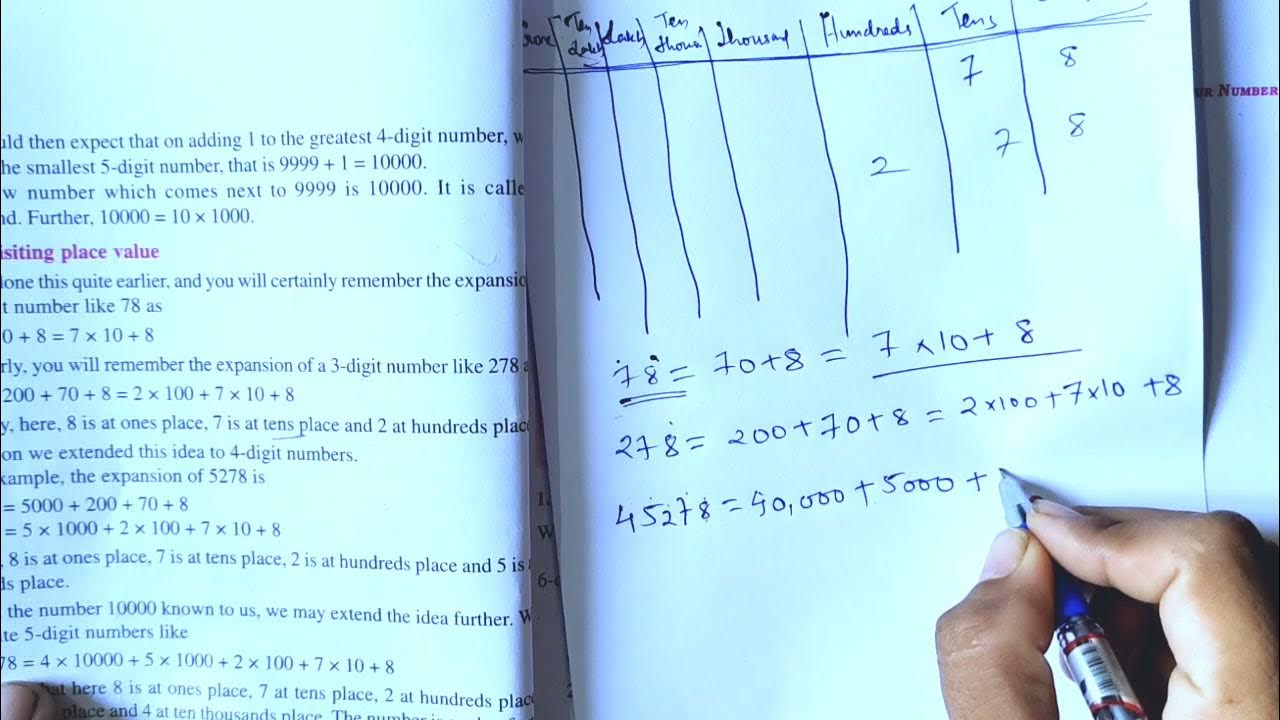 uld then expect that on adding 1 to the greatest 4-digit number, w
he smallest 5-digit number, that is 9999 + 1 = 10000.
w number which comes next to 9999 is 10000. It is calle
nd. Further, 10000 = 10 × 1000.
isiting place value
lone this quite earlier, and you will certainly remember the expansio
t number like 78 as
0 + 8 = 7 × 10 + 8
rly, you will remember the expansion of a 3-digit number like 278 a
200 + 70 + 8 = 2 × 100 + 7 × 10 + 8
y, here, 8 is at ones place, 7 is at tens place and 2 at hundreds plac
on we extended this idea to 4-digit numbers.
xample, the expansion of 5278 is
= 5000 + 200 + 70 + 8
= 5 × 1000 + 2 × 100 + 7 × 10 + 8
, 8 is at ones place, 7 is at tens place, 2 is at hundreds place and 5 is
ds place.
the number 10000 known to us, we may extend the idea further. W
te 5-digit numbers like
78 = 4 × 10000 + 5 × 1000 + 2 × 100 + 7 × 10 + 8
hat here 8 is at ones place, 7 at tens place, 2 at hundreds plac
place and 4 at ten thousands place. The number
rore Ten Lakhs Lakh Ten thous Thousand Hundreds Tens
7 8
2 7 8
78 = 70+8 = 7×10+ 8
278 = 200+70+8 = 2×100+7×10 +8
45278 = 40,000 + 5000 +
UR NUMBER
1.
W
6-